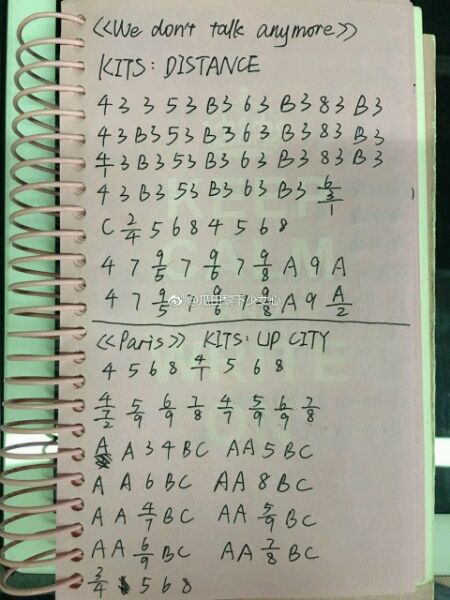 《We don't talk anymore》
KITS: DISTANCE
4 3 3 5 3 B3 6 3 B3 8 3 B3
4 3 B3 5 3 B3 6 3 B3 8 3 B3
4/1 3 B3 5 3 B3 6 3 B3 8 3 B3
4 3 B3 5 3 B3 6 3 B3 6/3/1
C 2/4 5 6 8 4 5 6 8
4 7 9/5 7 9/6 7 9/8 A 9 A
4 7 9/5 9/6 7 9/8 A 9 A/2
@瓜田黎下少女心
《Paris》 KITS: UP CITY
4 5 6 8 4/1 5 6 8
4/7/2 5/9 6/9 7/8 4/7 5/9 6/9 7/8
A A 3 4 B C A A 5 B C
A A 6 B C A A 8 B C
A A 4/7 B C A A 5/9 B C
A A 6/9 B C A A 7/8 B C
3/4 5 6 8
KEEP
CALM
WRITE
ON